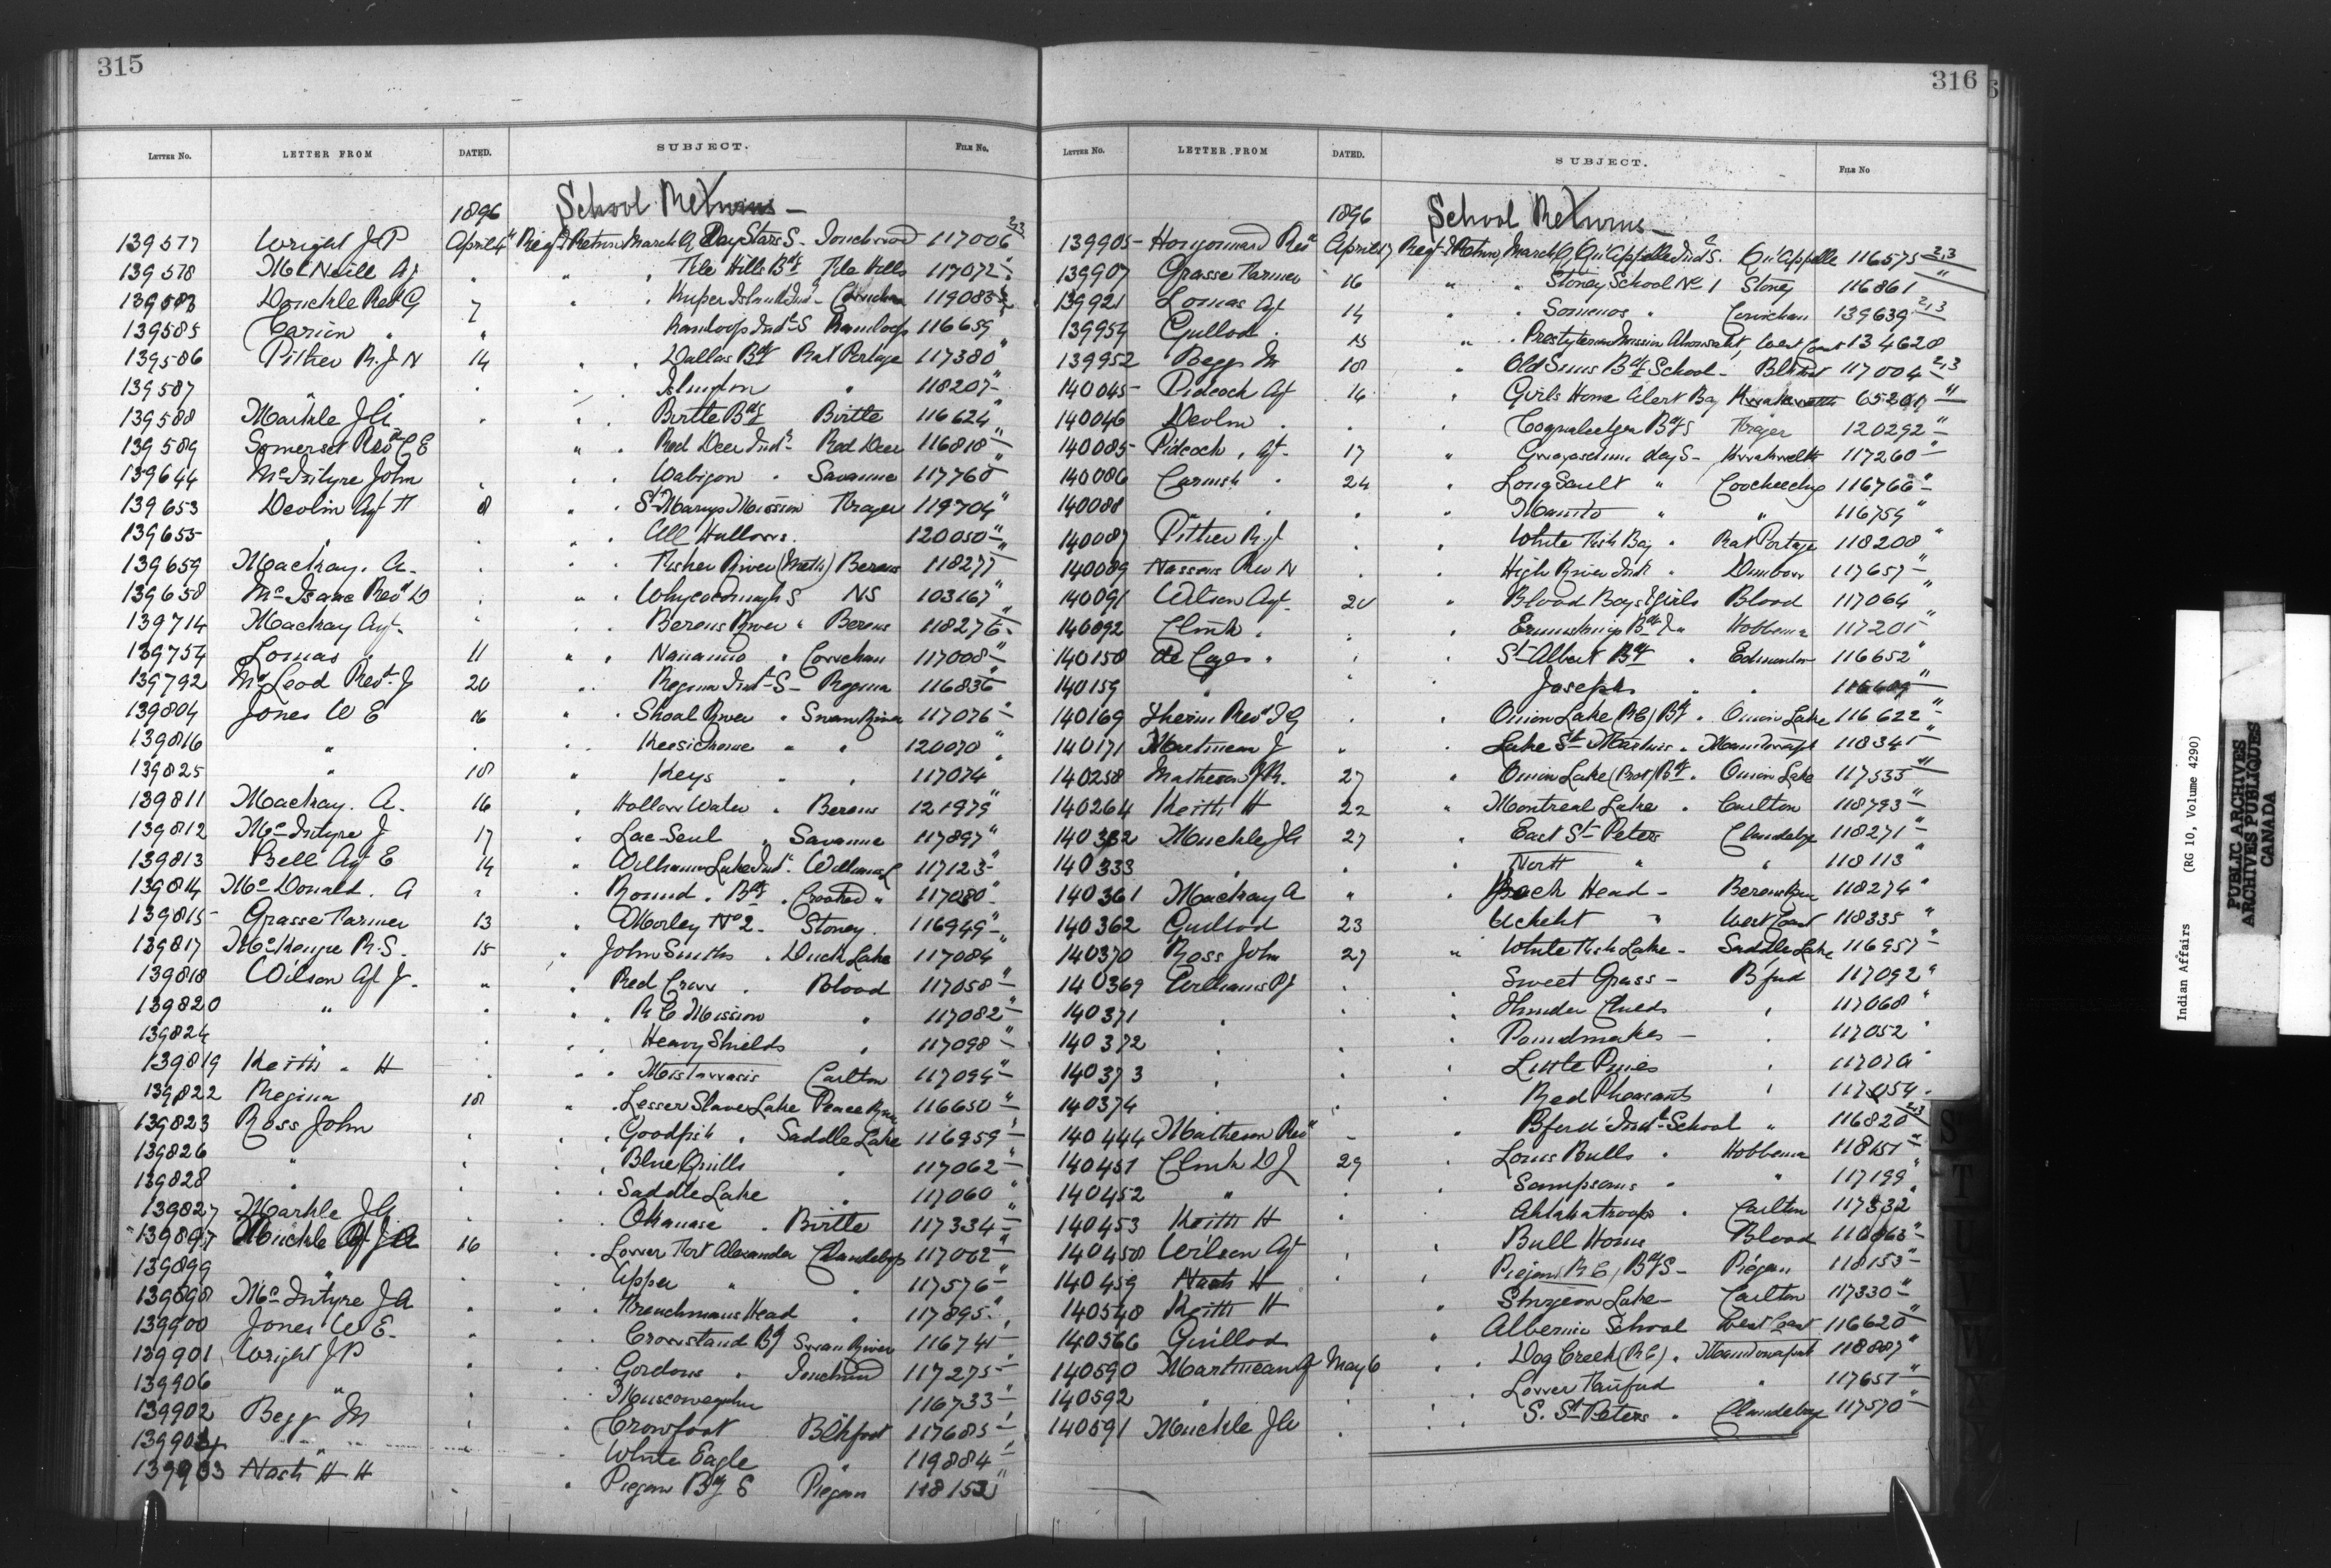 315
LETTER No. LETTER FROM DATED. SUBJECT. FILE No.
1896 School Returns —
139577 Wright J P April 4 Regt Return March Q Day Stars S - Touchwood 117006 2,3
139578 McNeill Ag " " File Hills Bdg File Hills 117072 "
139583 Donckle Rev G 7 " Kuper Island Ind - Cowichan 119083
139585 Carion " " Kamloops Ind S Kamloops 116659
139586 Pither R. J N 14 " " Dallas Bdg Rat Portage 117380 "
139587 " " " Islington " 118207 "
139588 Markle J A " " Birtle Bdg Birtle 116624 "
139589 Somerset Rev C E " " Red Deer Ind - Red Deer 116818 "
139644 McIntyre John " " Wabigon " Savanne 117760
139653 Devlin Agt F 8 " " St Marys Mission Fraser 119704 "
139655 " " " All Hallows. 120050 "
139659 Mackay. A. " " Fisher River (Meth) Berens 118277 "
139658 McIsaac Rev D " " " Whycocomagh S NS 103167 "
139714 Mackay Agt. " " Berens River " Berens 118276 "
139754 Lomas " 11 " " Nanaimo " Cowichan 117008 "
139792 McLeod Rev J 20 " Regina Ind S - Regina 116836 "
139804 Jones W E 16 " " Shoal River " Swan River 117076 "
139816 " " " Keesickouse " " 120070 "
139825 " 18 " Keys " " 117074 "
139811 Mackay. A. 16 " Hollow Water " Berens 121979 "
139812 McIntyre J 17 " Lac Seul " Savanne 117897 "
139813 Bell Agt E 14 " Williams Lake Ind. Williams L 117123 "
139814 McDonald. A " " Round " Bdg " Crooked " 117080 "
139815 Grasse Farmer 13 " Morley No 2 - Stoney. 116949 "
139817 McKenzie R. S. 15 " John Smiths " Duck Lake 117084 "
139818 Wilson Agt J. " " Red Crow " Blood 117058 "
139820 " " " R C Mission " 117082 "
139824 " " " Heavy Shields " 117098 "
139819 Keith " H " " Mistawasis Carlton 117094 "
139822 Regina 18 " Lesser Slave Lake Peace River 116650 "
139823 Ross John " " Goodfish " Saddle Lake 116959 "
139826 " " " Blue Quills " 117062 "
139828 " " " Saddle Lake " 117060 "
139827 Markle J A " " Okanase " Birtle 117334 "
139897 Muckle Agt J A 16 " Lower Fort Alexander Clandeboye 117062 "
139899 " " " Upper " " 117576 "
139898 McIntyre J A " " Frenchmans Head " 117895 "
139900 Jones W E. " " Crowstand Bdg Swan River 116741
139901 Wright J P " " Gordons " Touchwood 117275
139906 " " " Muscowequan 116733 "
139902 Begg M " " Crowfoot Blkfoot 117685 "
" " White Eagle " 119884
139903 Nash H H " Piegan Bdg E Piegan 118152
316
LETTER No. LETTER FROM DATED. SUBJECT. FILE No
1896 School Returns —
139905 Hougonnard Rev April 17 Regt Return, March Q, Qu'Appelle Ind S. Qu'Appelle 116575 2,3
139907 Grasse Farmer 16 " " Stoney School No 1 Stoney 116861 "
139921 Lomas Agt 14 " Somenos " Cowichan 139639 2,3
139959 Guillod " 13 " Presbyterian Mission Ahousaht, West Coast 134620
139952 Begg M 18 " Old Suns Bdg School - Blkfoot 117004 2,3
140045 Pidcock Agt 16 " Girls Home Alert Bay Kwakewlth "
140046 Devlin " " Coqualeetza Bdg S Fraser 120292 "
140085 Pidcock, Agt. 17 " day S - Kwakewlth 117260 "
140086 Carnish " 24 " Long Sault " Coocheeching 116766 "
140088 " " " Manito " " 116759 "
140087 Pither R. J " " White Fish Bay " Rat Portage 118208 "
140089 Nassens Rev N " " High River Ind " Dunbow 117657 "
140091 Wilson Agt. 20 " Blood Boys & Girls Blood 117064 "
140092 Clink " " " Ermineskins Bdg S " Hobbema 117201 "
140158 de Cazes " " " St Albert Bdg " Edmonton 116652 "
140159 " " " Josephs " " "
140169 Therien Rev J G " " Onion Lake (R C) Bdg " Onion Lake 116622 "
140171 Martineau J " " Lake St Martins " Manitowapah 118341 "
140258 Matheson J R. 27 " Onion Lake (Prot) Bdg " Onion Lake 117535 "
140264 Keith H 22 " Montreal Lake " Carlton 118793 "
140332 Muckle J A 27 " East St Peters Clandeboye 118271 "
140333 " " " North " " 118113 "
140361 Mackay A " " Jack Head - Berens River 118274 "
140362 Guillod 23 " Ucluelet " West Coast 118335 "
140370 Ross John 27 " White Fish Lake - Saddle Lake 116957 "
140369 Williams P J " " Sweet Grass - Bford 117092 "
140371 " " " Thunder Childs " 117068 "
140372 " " " Poundmakers - " 117052 "
140373 " " " Little Pines "
140374 " " " Red Pheasants " 117054 "
140444 Matheson Rev - " Bford Ind School " 116820 2,3
140451 Clink D J 29 " Louis Bulls " Hobbema 118151 "
140452 " " " Sampsons " " 117199 "
140453 Keith H " " Ahtahkakoops " Carlton 117332
140458 Wilson Agt " " Bull Horns Blood
140459 Nash H " " Piegan R C, Bdg S - Piegan 118153 "
140548 Keith H " Sturgeon Lake - Carlton 117330 "
140566 Guillod " Alberni School West Coast 116620 "
140590 Martineau Agt May 6 " " Dog Creek (R C) " Manitowapah 118887 "
140592 " " " Lower Fairford " 117651 "
140591 Muckle J A " " S. St Peters " Clandeboye 117570 "
S
T
W
Indian Affairs (RG 10, Volume 4290)
PUBLIC ARCHIVES
ARCHIVES PUBLIQUES
CANADA